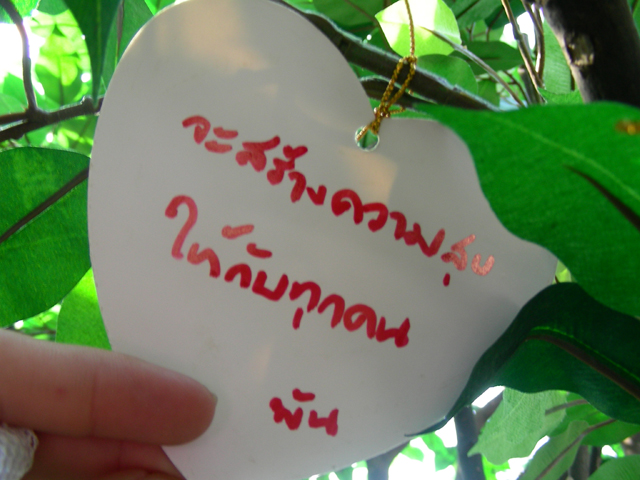 จะสร้างความสุข
ให้กับทุกคน
พัน